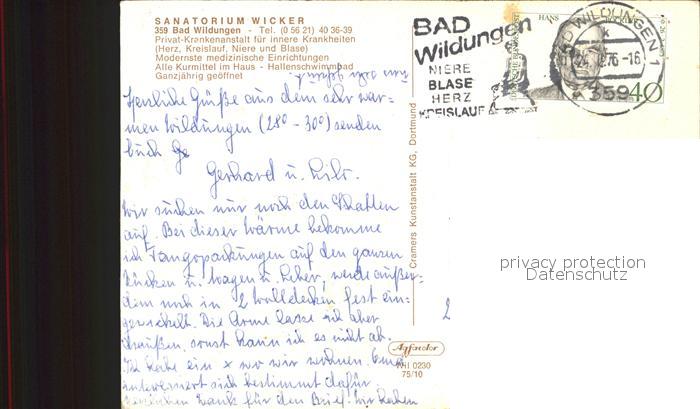 SANATORIUM WICKER
359 Bad Wildungen - Tel. (0 56 21) 40 36-39
Privat-Krankenanstalt für innere Krankheiten
(Herz, Kreislauf, Niere und Blase)
Modernste medizinische Einrichtungen
Alle Kurmittel im Haus - Hallenschwimmbad
Ganzjährig geöffnet
Herzliche Grüße aus dem sehr war-
men Wildungen (28° - 30°) senden
Euch
Gerhard u. Lilo.
Wir suchen nur noch den Schatten
auf. Bei dieser Wärme bekomme
ich Fangopackungen auf den ganzen
Rücken u. Magen u. Leber, werde außer-
dem noch in 2 Wolldecken fest ein-
gewickelt. Die Arme lasse ich aber
draußen, sonst kann ich es nicht ab.
Ich habe ein x wo wir wohnen.
interessiert sich bestimmt dafür.
Dank für den Brief. Wir haben
BAD
Wildungen
NIERE
BLASE
HERZ
KREISLAUF
HANS
BAD WILDUNGEN 1
76-16
359
40
Cramers Kunstanstalt KG, Dortmund
2
Agfacolor
0230
75/10
privacy protection
Datenschutz